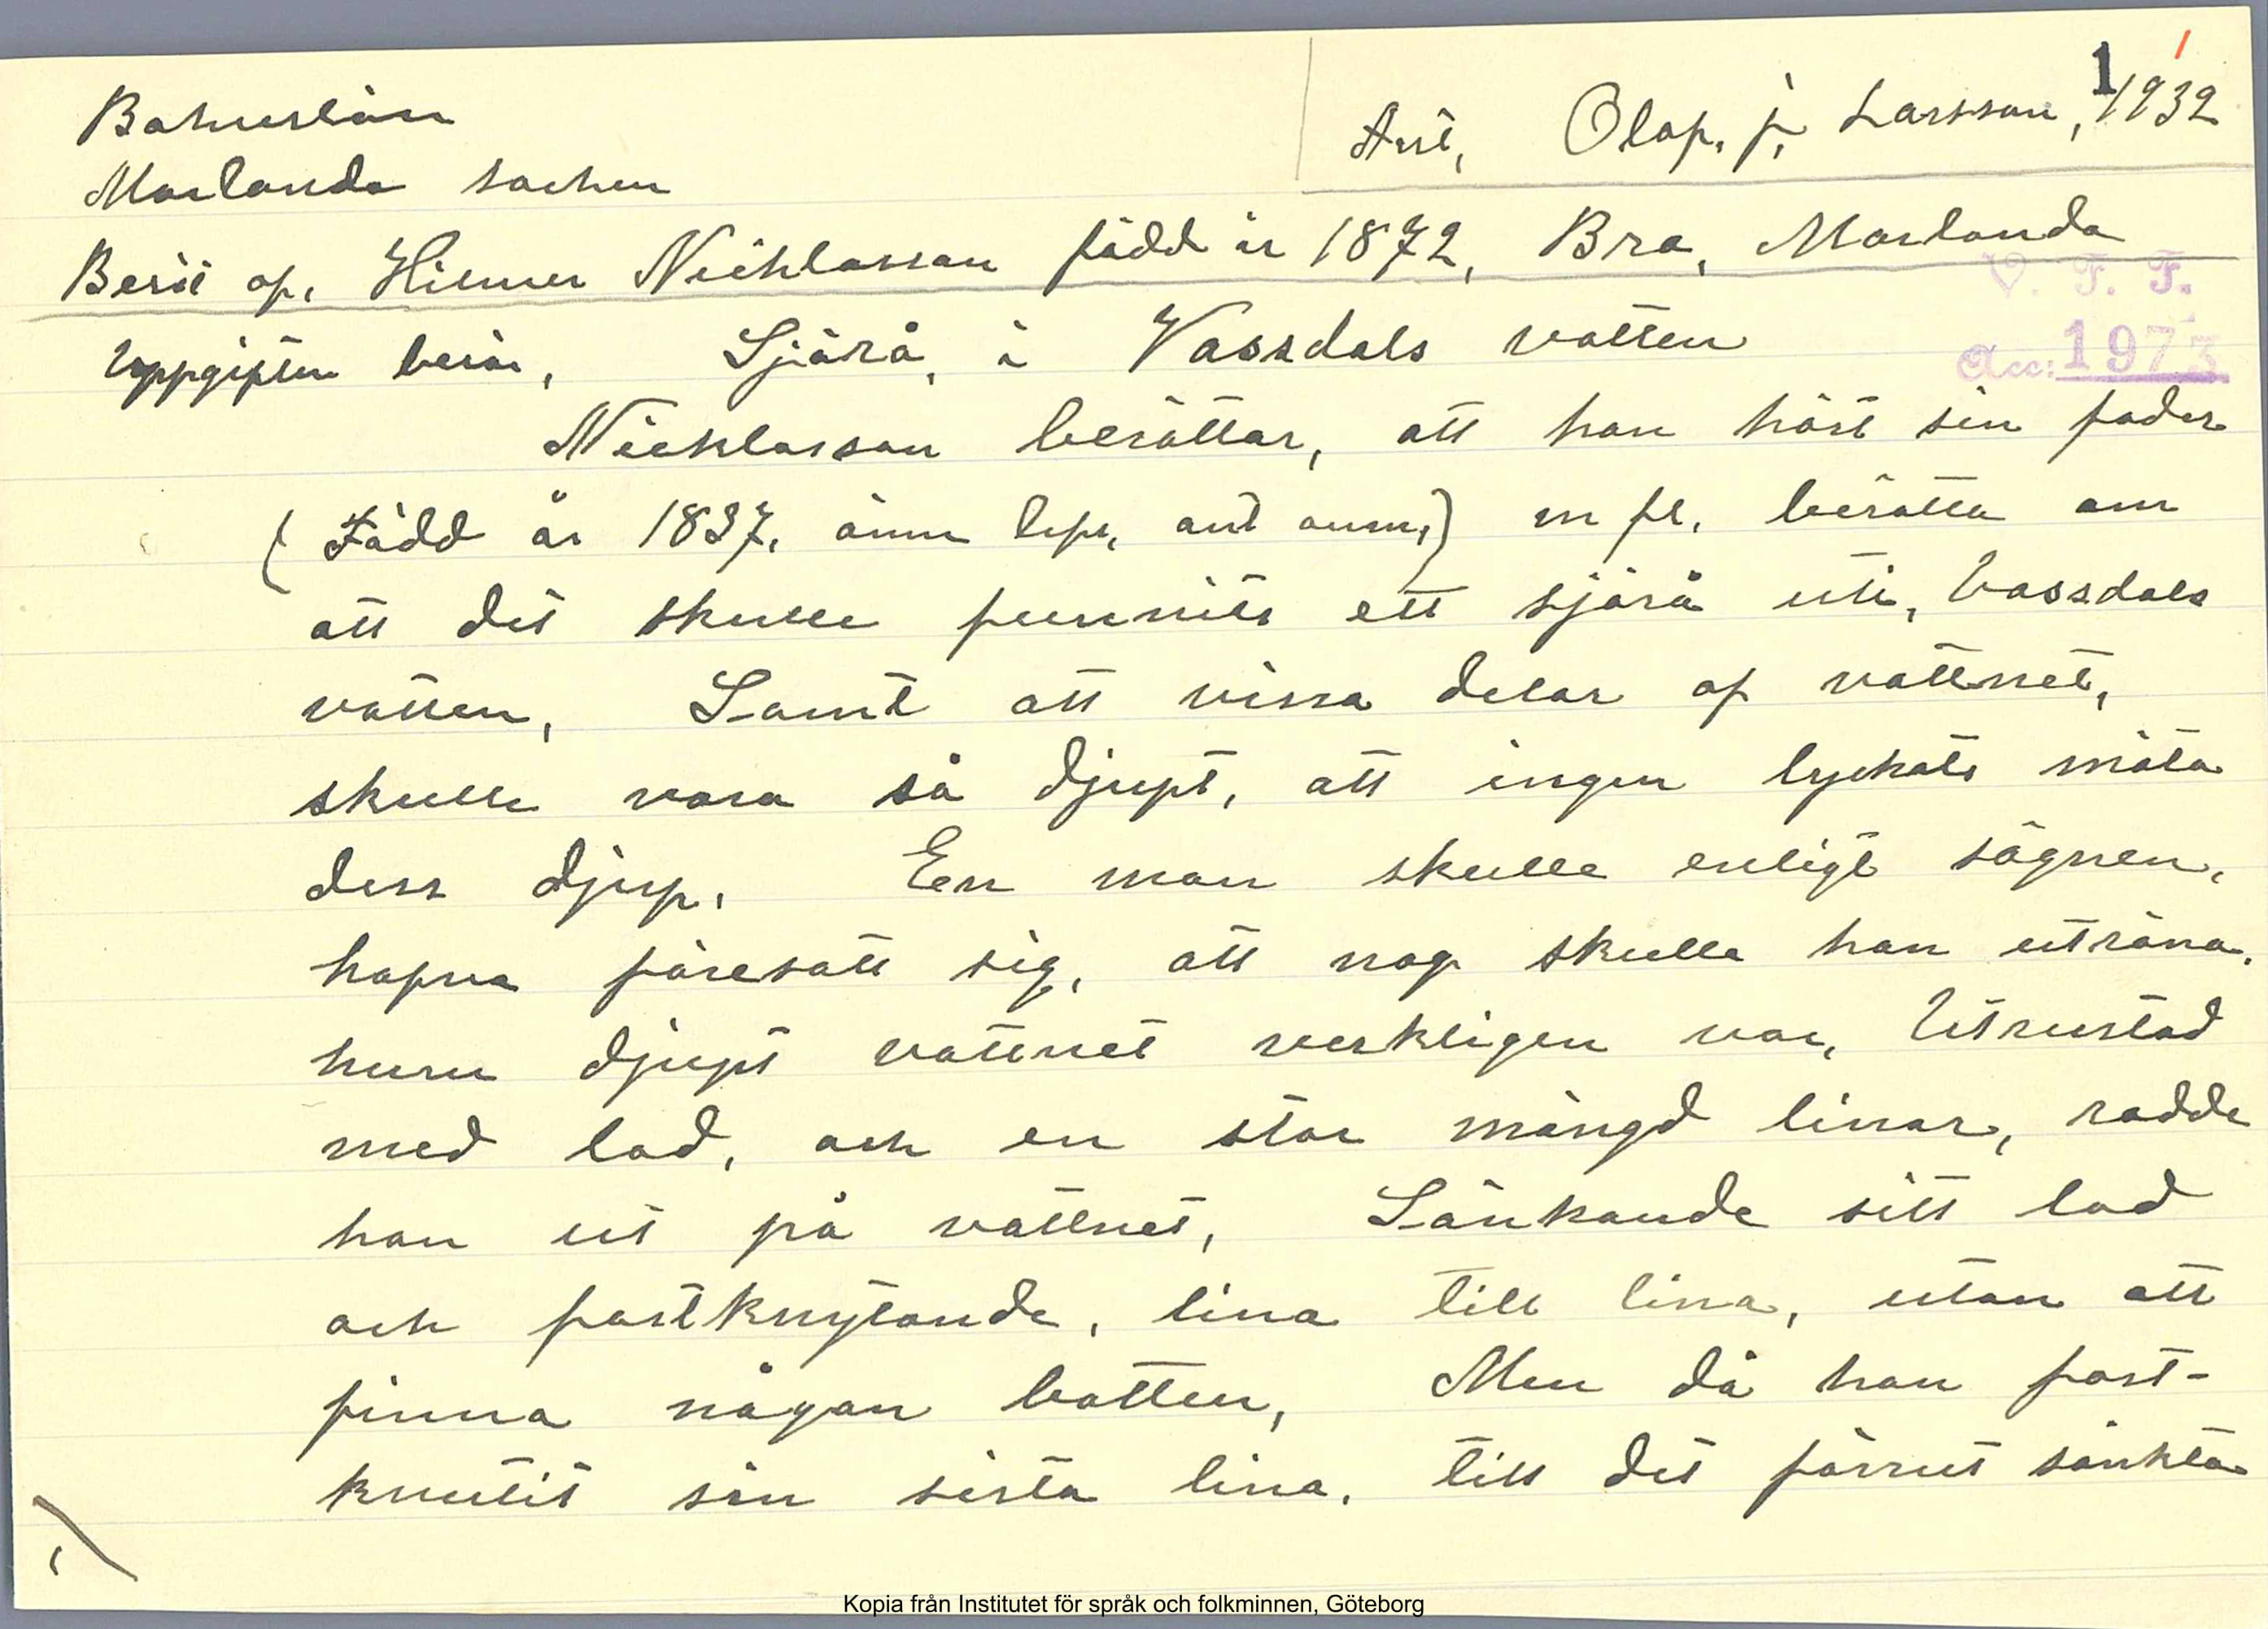 Bohuslän
Morlanda socken
Ant, Olof. j, Larsson, 1932
1
Berät af, Hilmer Nicklasson född år 1872, Bra, Morlanda
V. F. F.
Uppgiften berör, Sjörå, i Vassdals vatten
Acc: 1973
Nicklasson berättar, att han hört sin fader
(Född år 1837, ännu lefv, ant anm,) m fl. berätta om
att det skulle funnits ett sjörå uti, Vassdals
vatten, Samt att vissa delar af vattnet,
skulle vara så djupt, att ingen lyckats mäta
dess djup. En man skulle enligt sägnen,
hafva föresatt sig, att nog skulle han utröna,
huru djupt vattnet verkligen var, Utrustad
med lod, och en stor mängd linor, rodde
han ut på vattnet, Sänkande sitt lod
och fastknytande, lina till lina, utan att
finna någon botten, Men då han fast-
knutit sin sista lina, till det förrut sänkta
1)
Kopia från Institutet för språk och folkminnen, Göteborg